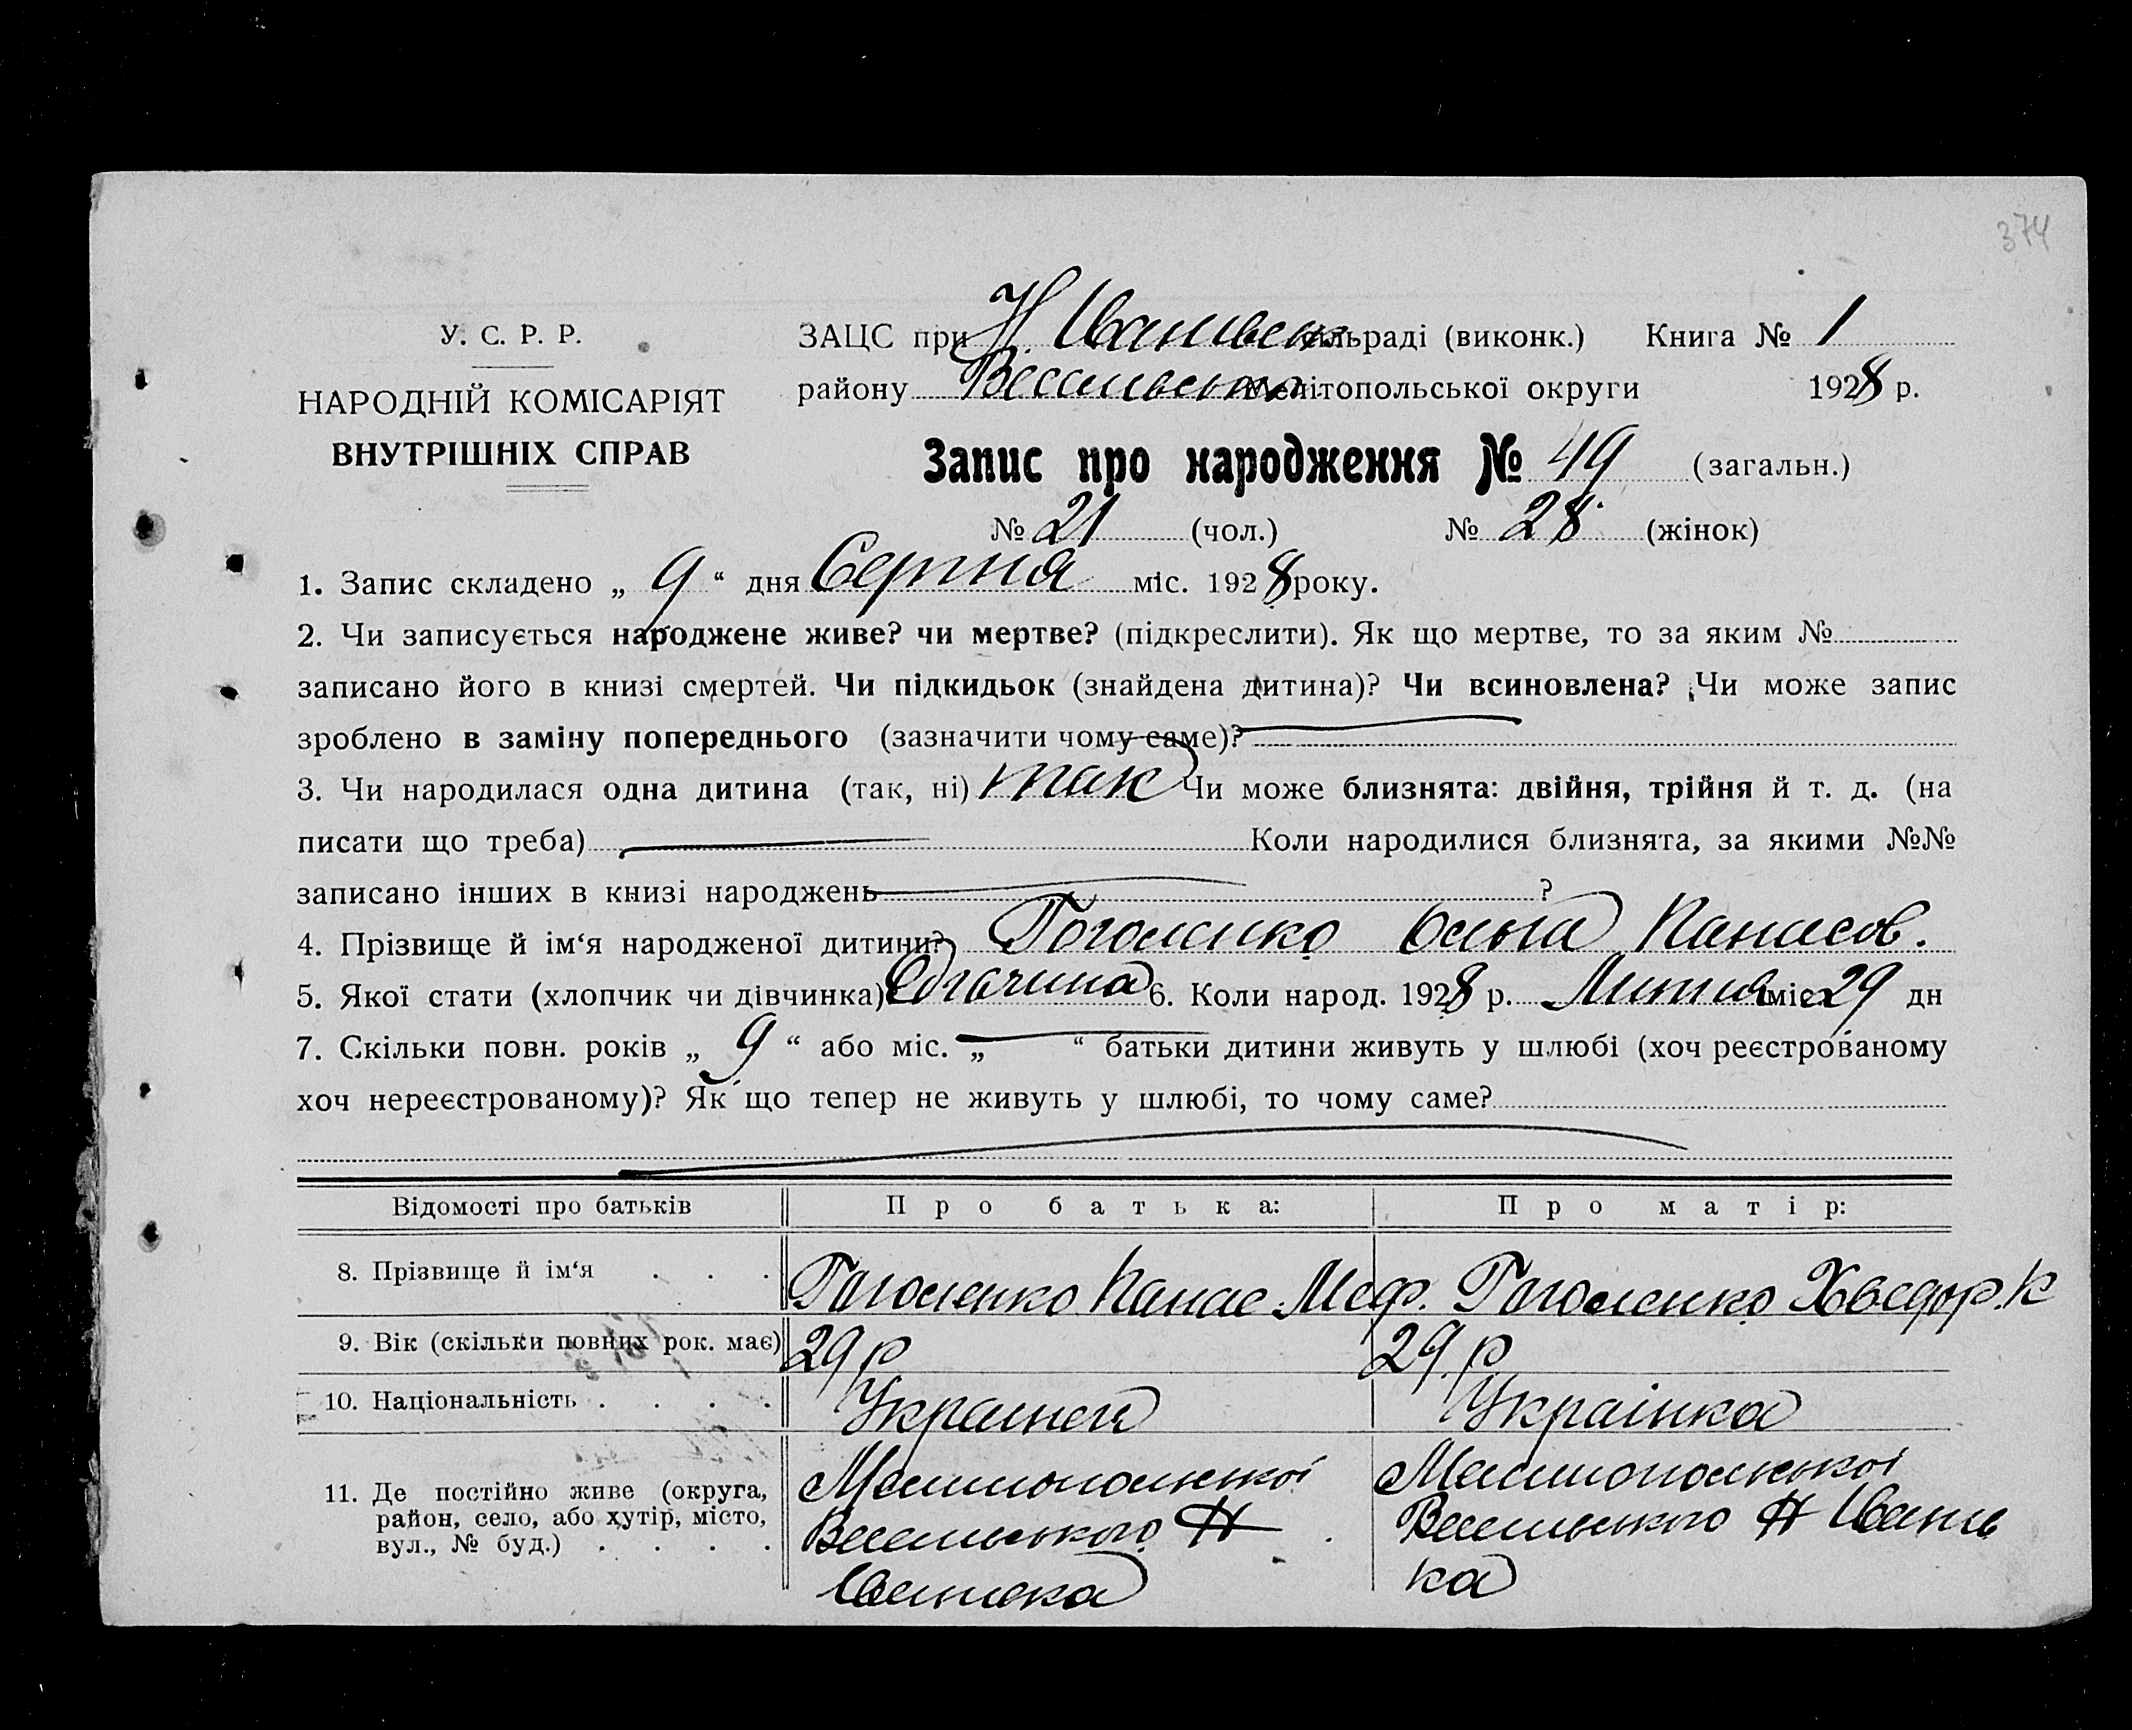 374
У. С. Р. Р.
НАРОДНІЙ КОМІСАРІЯТ
ВНУТРІШНІХ СПРАВ
ЗАЦС при Н Іванівськ сільраді (виконк.) Книга № 1
району Веселівськ Мелітопольської округи 1928 р.
Запис про народження № 49 (загальн.)
№ 21 (чол.) № 28 (жінок)
1. Запис складено „ 9 “ дня Серпня міс. 1928 року.
2. Чи записується народжене живе? чи мертве? (підкреслити). Як що мертве, то за яким №
записано його в книзі смертей. Чи підкидьок (знайдена дитина)? Чи всиновлена? Чи може запис
зроблено в заміну попереднього (зазначити чому саме)?
3. Чи народилася одна дитина (так, ні) так Чи може близнята: двійня, трійня й т. д. (на
писати що треба) Коли народилися близнята, за якими №№
записано інших в книзі народжень ?
4. Прізвище й ім‘я народженої дитини? Гоголенко Ольга Панасов.
5. Якої стати (хлопчик чи дівчинка) 6. Коли народ. 1928 р. Липня міс 29 дн
7. Скільки повн. років „ 9 “ або міс. „ “ батьки дитини живуть у шлюбі (хоч реєстрованому
хоч нереєстрованому)? Як що тепер не живуть у шлюбі, то чому саме?
Відомості про батьків Про батька: Про матір:
8. Прізвище й ім‘я . . . Гоголенко Панас Меф. Гоголенко Хведор. К
9. Вік (скільки повних рок. має) 29 р 29 р
10. Національність . . . . Українец Українка
11. Де постійно живе (округа, район, село, або хутір, місто, вул., № буд.) . . . .
Мелітопольської
Веселівського Н
Іванівка
Мелітопольської
Веселівського Н Іванів
ка